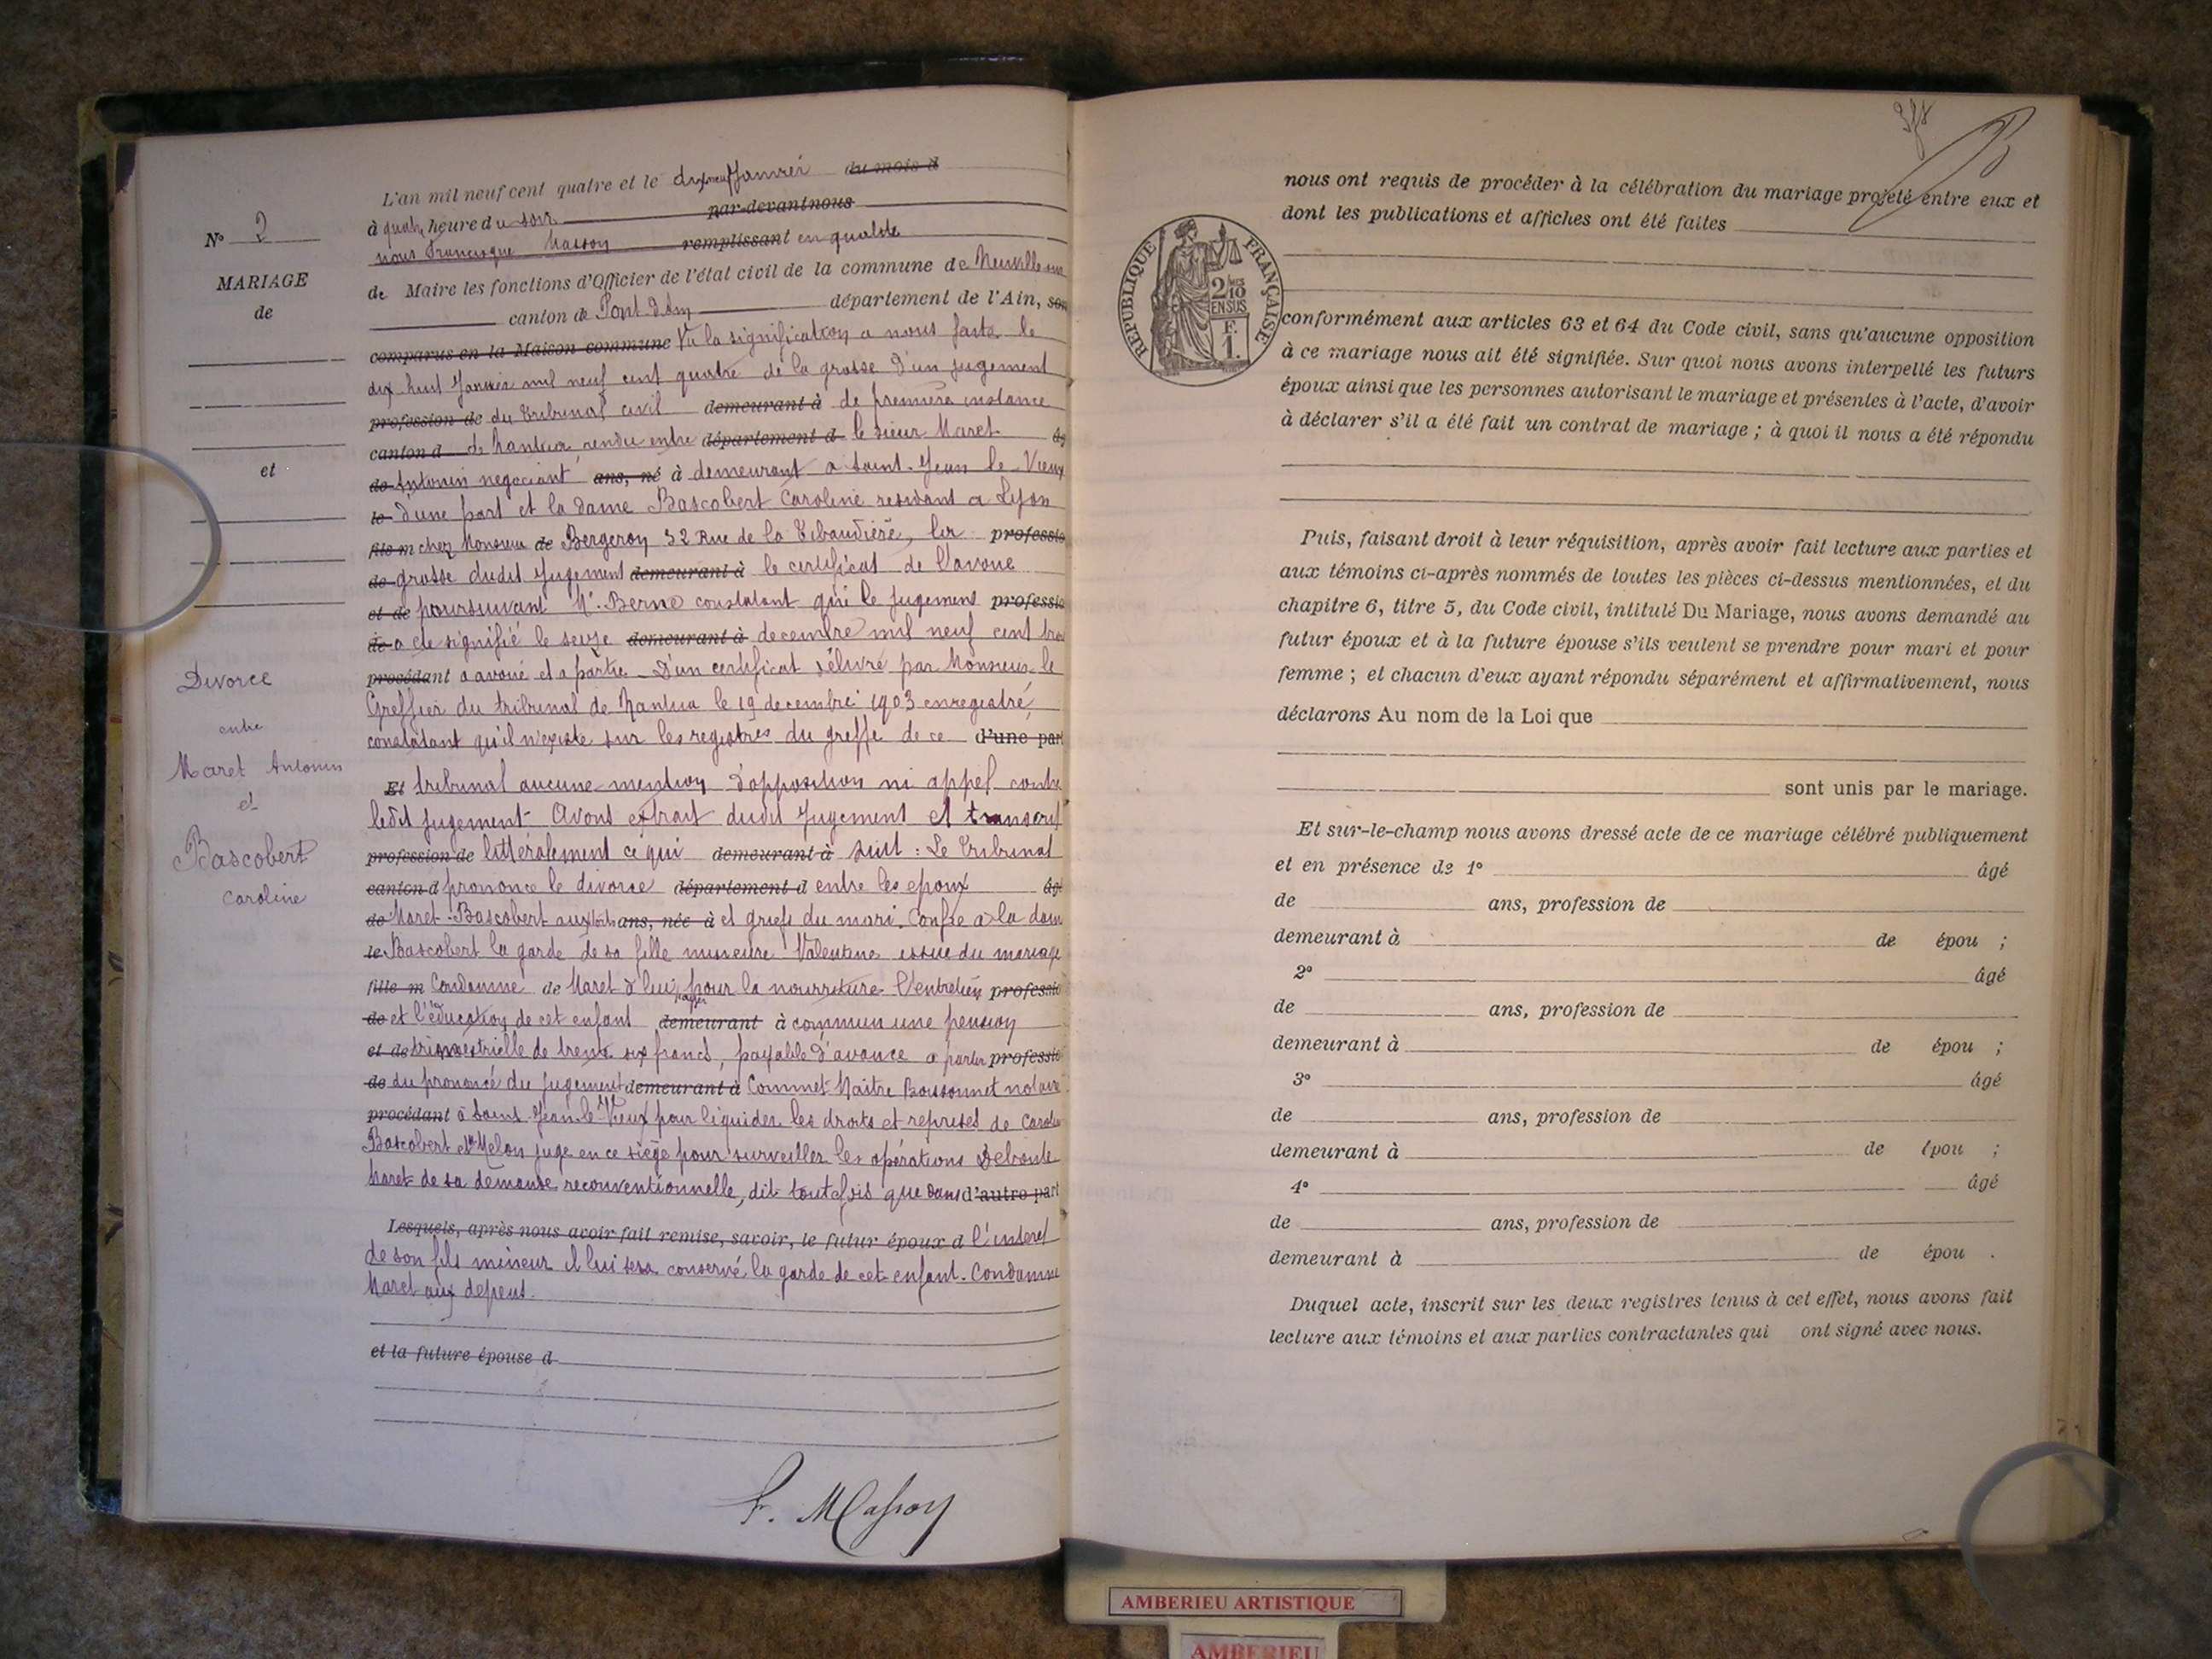 L'an mil neuf cent quatre et le dix neuf Janvier du mois d
à quatre heure du soir par-devant nous
nous Francisque Masson remplissant en qualité
de Maire les fonctions d'Officier de l'état civil de la commune de Neuville sur
canton de Pont d'Ain département de l'Ain, son
comparus en la Maison commune Vu la signification a nous faite le
dix huit Janvier mil neuf cent quatre de la grosse d'un jugement
profession de du tribunal civil demeurant à de première instance
canton d de Nantua rendu entre département d le sieur Maret âg
de Antonin negociant ans, né à demeurant a Saint-Jean le-Vieux
le d'une part et la dame Bascobert Caroline residant a Lyon
fils m chez Monsieur de Bergeron 32 Rue de la Thibaudière, la professio
de grosse dudit Jugement demeurant à le certificat de l'avoué
et de poursuivant Me Berne constatant que le jugement professio
de a été signifié le seize demeurant à decembre mil neuf cent trois
procédant a avoué et a partie _ D'un certificat délivré par Monsieur le
Greffier du tribunal de Nantua le 19 decembre 1903 enregistré,
constatant qu'il n'existe sur les registres du greffe de ce d'une part
Et tribunal aucune mention d'opposition ni appel contre
ledit jugement Avons extrait dudit Jugement et transcrit
profession de littéralement ce qui demeurant à suit : Le Tribunal
canton d prononce le divorce département d entre les epoux âg
de Maret-Bascobert aux torts ans, née à et griefs du mari. Confie a la dame
le Bascobert la garde de sa fille mineure Valentine issue du mariage
fille m Condamne de Maret à lui payer pour la nourriture l'entretien professio
de et l'éducation de cet enfant demeurant à commun une pension
et de trimestrielle de trente six francs, payable d'avance a partir professio
de du prononcé du jugement demeurant à Commet Maitre Boissonnet notaire
procédant à Saint-Jean-le-Vieux pour liquider les droits et reprises de Caroline
Bascobert et Mr Melon juge en ce siège pour surveiller les opérations Deboute
Maret de sa demande reconventionnelle, dit toutefois que dans d'autre part
Lesquels, après nous avoir fait remise, savoir, le futur époux d l'interet
de son fils mineur il lui sera conservé la garde de cet enfant. Condamne
Maret aux depens.
et la future épouse d
F. Masson
N° 2
MARIAGE
de
et
Divorce
entre
Maret Antonin
et
Bascobert
Caroline
nous ont requis de procéder à la célébration du mariage projeté entre eux et
dont les publications et affiches ont été faites
REPUBLIQUE FRANÇAISE
2/10
EN SUS
F.
1.
conformément aux articles 63 et 64 du Code civil, sans qu'aucune opposition
à ce mariage nous ait été signifiée. Sur quoi nous avons interpellé les futurs
époux ainsi que les personnes autorisant le mariage et présentes à l'acte, d'avoir
à déclarer s'il a été fait un contrat de mariage ; à quoi il nous a été répondu
Puis, faisant droit à leur réquisition, après avoir fait lecture aux parties et
aux témoins ci-après nommés de toutes les pièces ci-dessus mentionnées, et du
chapitre 6, titre 5, du Code civil, intitulé Du Mariage, nous avons demandé au
futur époux et à la future épouse s'ils veulent se prendre pour mari et pour
femme ; et chacun d'eux ayant répondu séparément et affirmativement, nous
déclarons Au nom de la Loi que
sont unis par le mariage.
Et sur-le-champ nous avons dressé acte de ce mariage célébré publiquement
et en présence de 1° âgé
de ans, profession de
demeurant à de épou ;
2° âgé
de ans, profession de
demeurant à de épou ;
3° âgé
de ans, profession de
demeurant à de épou ;
4° âgé
de ans, profession de
demeurant à de épou .
Duquel acte, inscrit sur les deux registres tenus à cet effet, nous avons fait
lecture aux témoins et aux parties contractantes qui ont signé avec nous.
AMBERIEU ARTISTIQUE
AMBERIEU